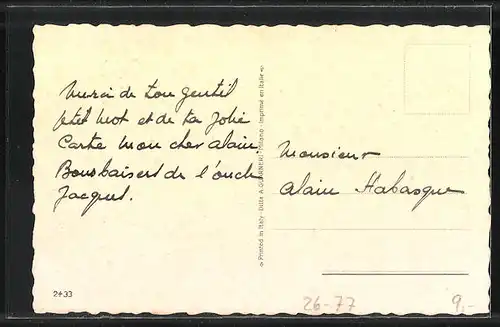 Merci de ton gentil
petit mot et de ta jolie
Carte mon cher alain,
Bons baisers de l'oncle
Jacques.
Monsieur
alain Habasque
Printed in Italy - Ditta A. GUARNERI - Milano - Imprimé en Italie
2433
26-77
9,-